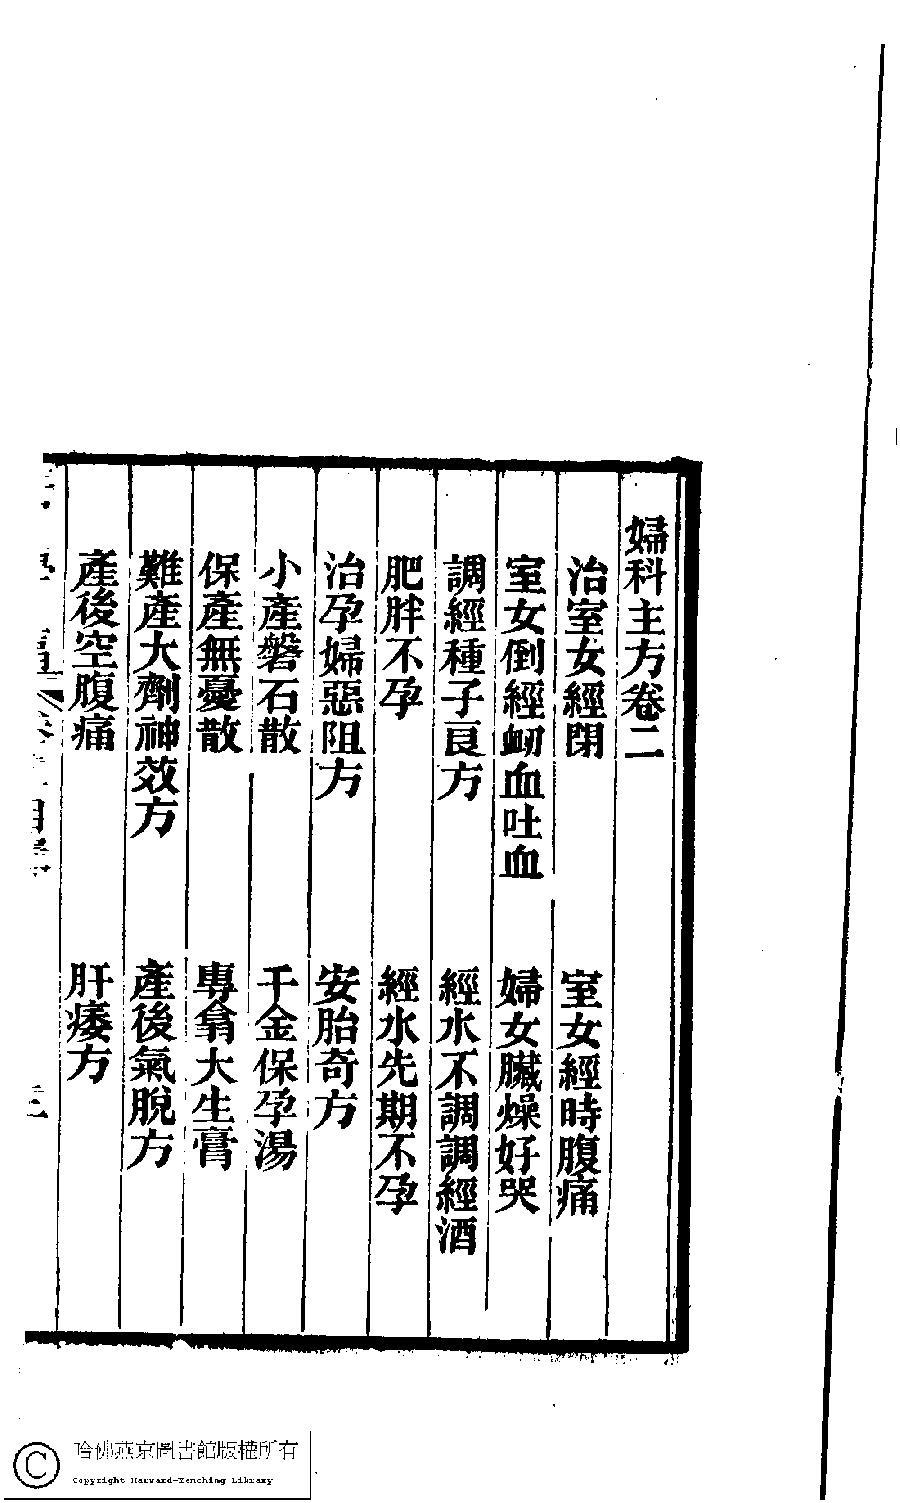 婦科主方卷二
治室女經閉　室女經時腹痛
室女倒經衂血吐血　婦女臟燥好哭
調經種子良方　經水不調調經酒
肥胖不孕　經水先期不孕
治孕婦惡阻方　安胎奇方
小產磐石散　千金保孕湯
保產無憂散　專翕大生膏
難產大劑神效方　產後氣脫方
產後空腹痛　肝痿方
哈佛燕京圖書館版權所有
Copyright Harvard-Yenching Library